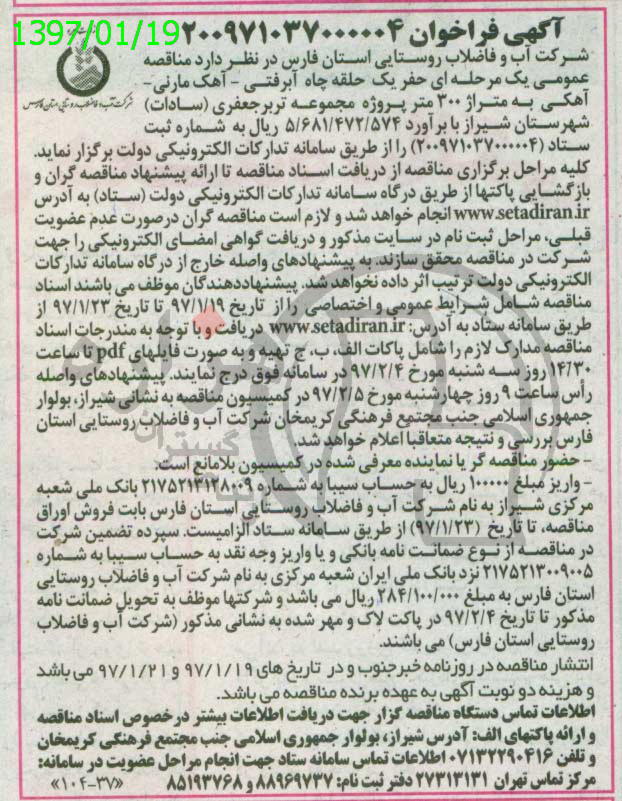 1397/01/19
آگهی فراخوان ۲۰۰۹۷۱۰۳۷۰۰۰۰۰۴
شرکت آب و فاضلاب روستایی استان فارس در نظر دارد مناقصه
عمومی یک مرحله ای حفر یک حلقه چاه آبرفتی - آهک مارنی-
آهکی به متراژ ۳۰۰ متر پروژه مجموعه تربرجعفری (سادات)
شهرستان شیراز با برآورد ۵/۶۸۱/۴۷۲/۵۷۴ ریال به شماره ثبت
شرکت آب و فاضلاب روستایی استان فارس
ستاد (۲۰۰۹۷۱۰۳۷۰۰۰۰۰۴) را از طریق سامانه تدارکات الکترونیکی دولت برگزار نماید.
کلیه مراحل برگزاری مناقصه از دریافت اسناد مناقصه تا ارائه پیشنهاد مناقصه گران و
بازگشایی پاکتها از طریق درگاه سامانه تدارکات الکترونیکی دولت (ستاد) به آدرس
www.setadiran.ir انجام خواهد شد و لازم است مناقصه گران درصورت عدم عضویت
قبلی، مراحل ثبت نام در سایت مذکور و دریافت گواهی امضای الکترونیکی را جهت
شرکت در مناقصه محقق سازند. به پیشنهادهای واصله خارج از درگاه سامانه تدارکات
الکترونیکی دولت ترتیب اثر داده نخواهد شد. پیشنهاددهندگان موظف می باشند اسناد
مناقصه شامل شرایط عمومی و اختصاصی را از تاریخ ۹۷/۱/۱۹ تا تاریخ ۹۷/۱/۲۳ از
طریق سامانه ستاد به آدرس: www.setadiran.ir دریافت و با توجه به مندرجات اسناد
مناقصه مدارک لازم را شامل پاکات الف، ب، ج تهیه و به صورت فایلهای pdf تا ساعت
۱۴/۳۰ روز سه شنبه مورخ ۹۷/۲/۴ در سامانه فوق درج نمایند. پیشنهادهای واصله
رأس ساعت ۹ روز چهارشنبه مورخ ۹۷/۲/۵ در کمیسیون مناقصه به نشانی شیراز، بولوار
جمهوری اسلامی جنب مجتمع فرهنگی کریمخان شرکت آب و فاضلاب روستایی استان
فارس بررسی و نتیجه متعاقبا اعلام خواهد شد.
- حضور مناقصه گر یا نماینده معرفی شده در کمیسیون بلامانع است.
- واریز مبلغ ۱۰۰۰۰۰ ریال به حساب سیبا به شماره ۲۱۷۵۲۱۳۱۲۸۰۰۹ بانک ملی شعبه
مرکزی شیراز به نام شرکت آب و فاضلاب روستایی استان فارس بابت فروش اوراق
مناقصه، تا تاریخ (۹۷/۱/۲۳) از طریق سامانه ستاد الزامیست. سپرده تضمین شرکت
در مناقصه از نوع ضمانت نامه بانکی و یا واریز وجه نقد به حساب سیبا به شماره
۲۱۷۵۲۱۳۰۰۹۰۰۵ نزد بانک ملی ایران شعبه مرکزی به نام شرکت آب و فاضلاب روستایی
استان فارس به مبلغ ۲۸۴/۱۰۰/۰۰۰ ریال می باشد و شرکتها موظف به تحویل ضمانت نامه
مذکور تا تاریخ ۹۷/۲/۴ در پاکت لاک و مهر شده به نشانی مذکور (شرکت آب و فاضلاب
روستایی استان فارس) می باشند.
انتشار مناقصه در روزنامه خبرجنوب و در تاریخ های ۹۷/۱/۱۹ و ۹۷/۱/۲۱ می باشد
و هزینه دو نوبت آگهی به عهده برنده مناقصه می باشد.
اطلاعات تماس دستگاه مناقصه گزار جهت دریافت اطلاعات بیشتر درخصوص اسناد مناقصه
و ارائه پاکتهای الف: آدرس شیراز، بولوار جمهوری اسلامی جنب مجتمع فرهنگی کریمخان
و تلفن ۰۷۱۳۲۲۹۰۴۱۶ اطلاعات تماس سامانه ستاد جهت انجام مراحل عضویت در سامانه:
مرکز تماس تهران ۲۷۳۱۳۱۳۱ دفتر ثبت نام: ۸۸۹۶۹۷۳۷ و ۸۵۱۹۳۷۶۸ «۱۰۴-۳۷»